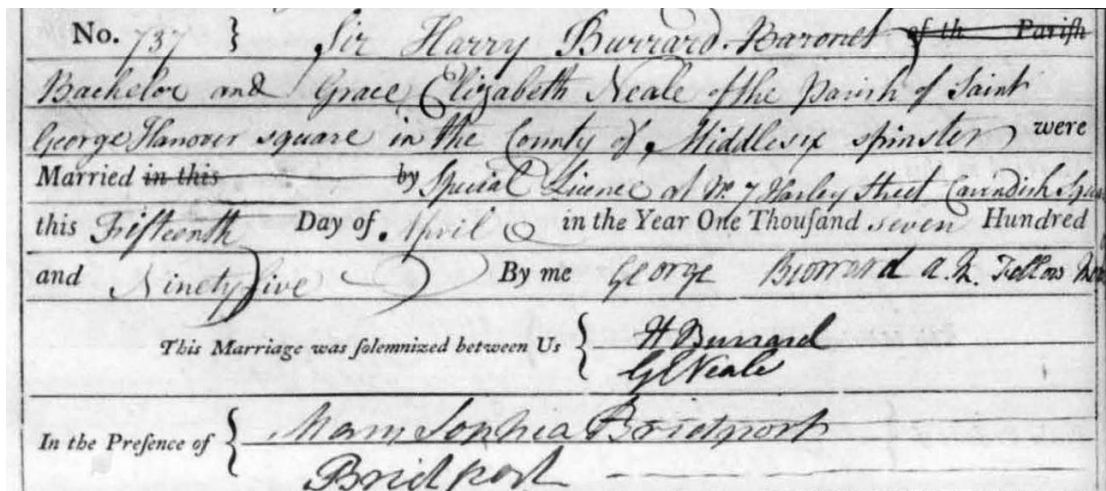 No. 737 } Sir Harry Burrard Baronet of th Parish
Bachelor and Grace Elizabeth Neale of the Parish of Saint
George Hanover square in the County of Middlesex spinster were
Married in this by Special Licence at No. 7 Harley Street Cavendish
this Fifteenth Day of April in the Year One Thousand seven Hundred
and Ninety five By me George Burrard Fellow
This Marriage was solemnized between Us { H Burrard
G E Neale
In the Presence of { Mary Sophia Bridport
Bridport